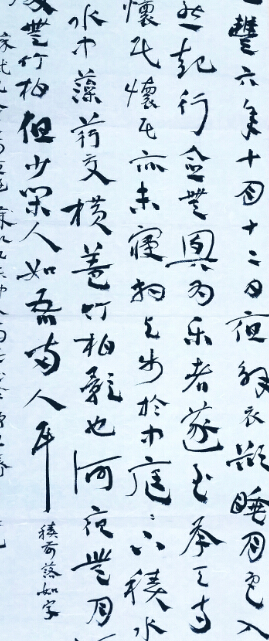 豐六年十月十二日夜解衣欲睡月色入
然起行念無與为乐者遂至承天寺
懷民懷民亦未寢相与步於中庭〻下積水
水中藻荇交横蓋竹柏影也何夜無月
處無竹柏但少閑人如吾兩人耳
積前落如字